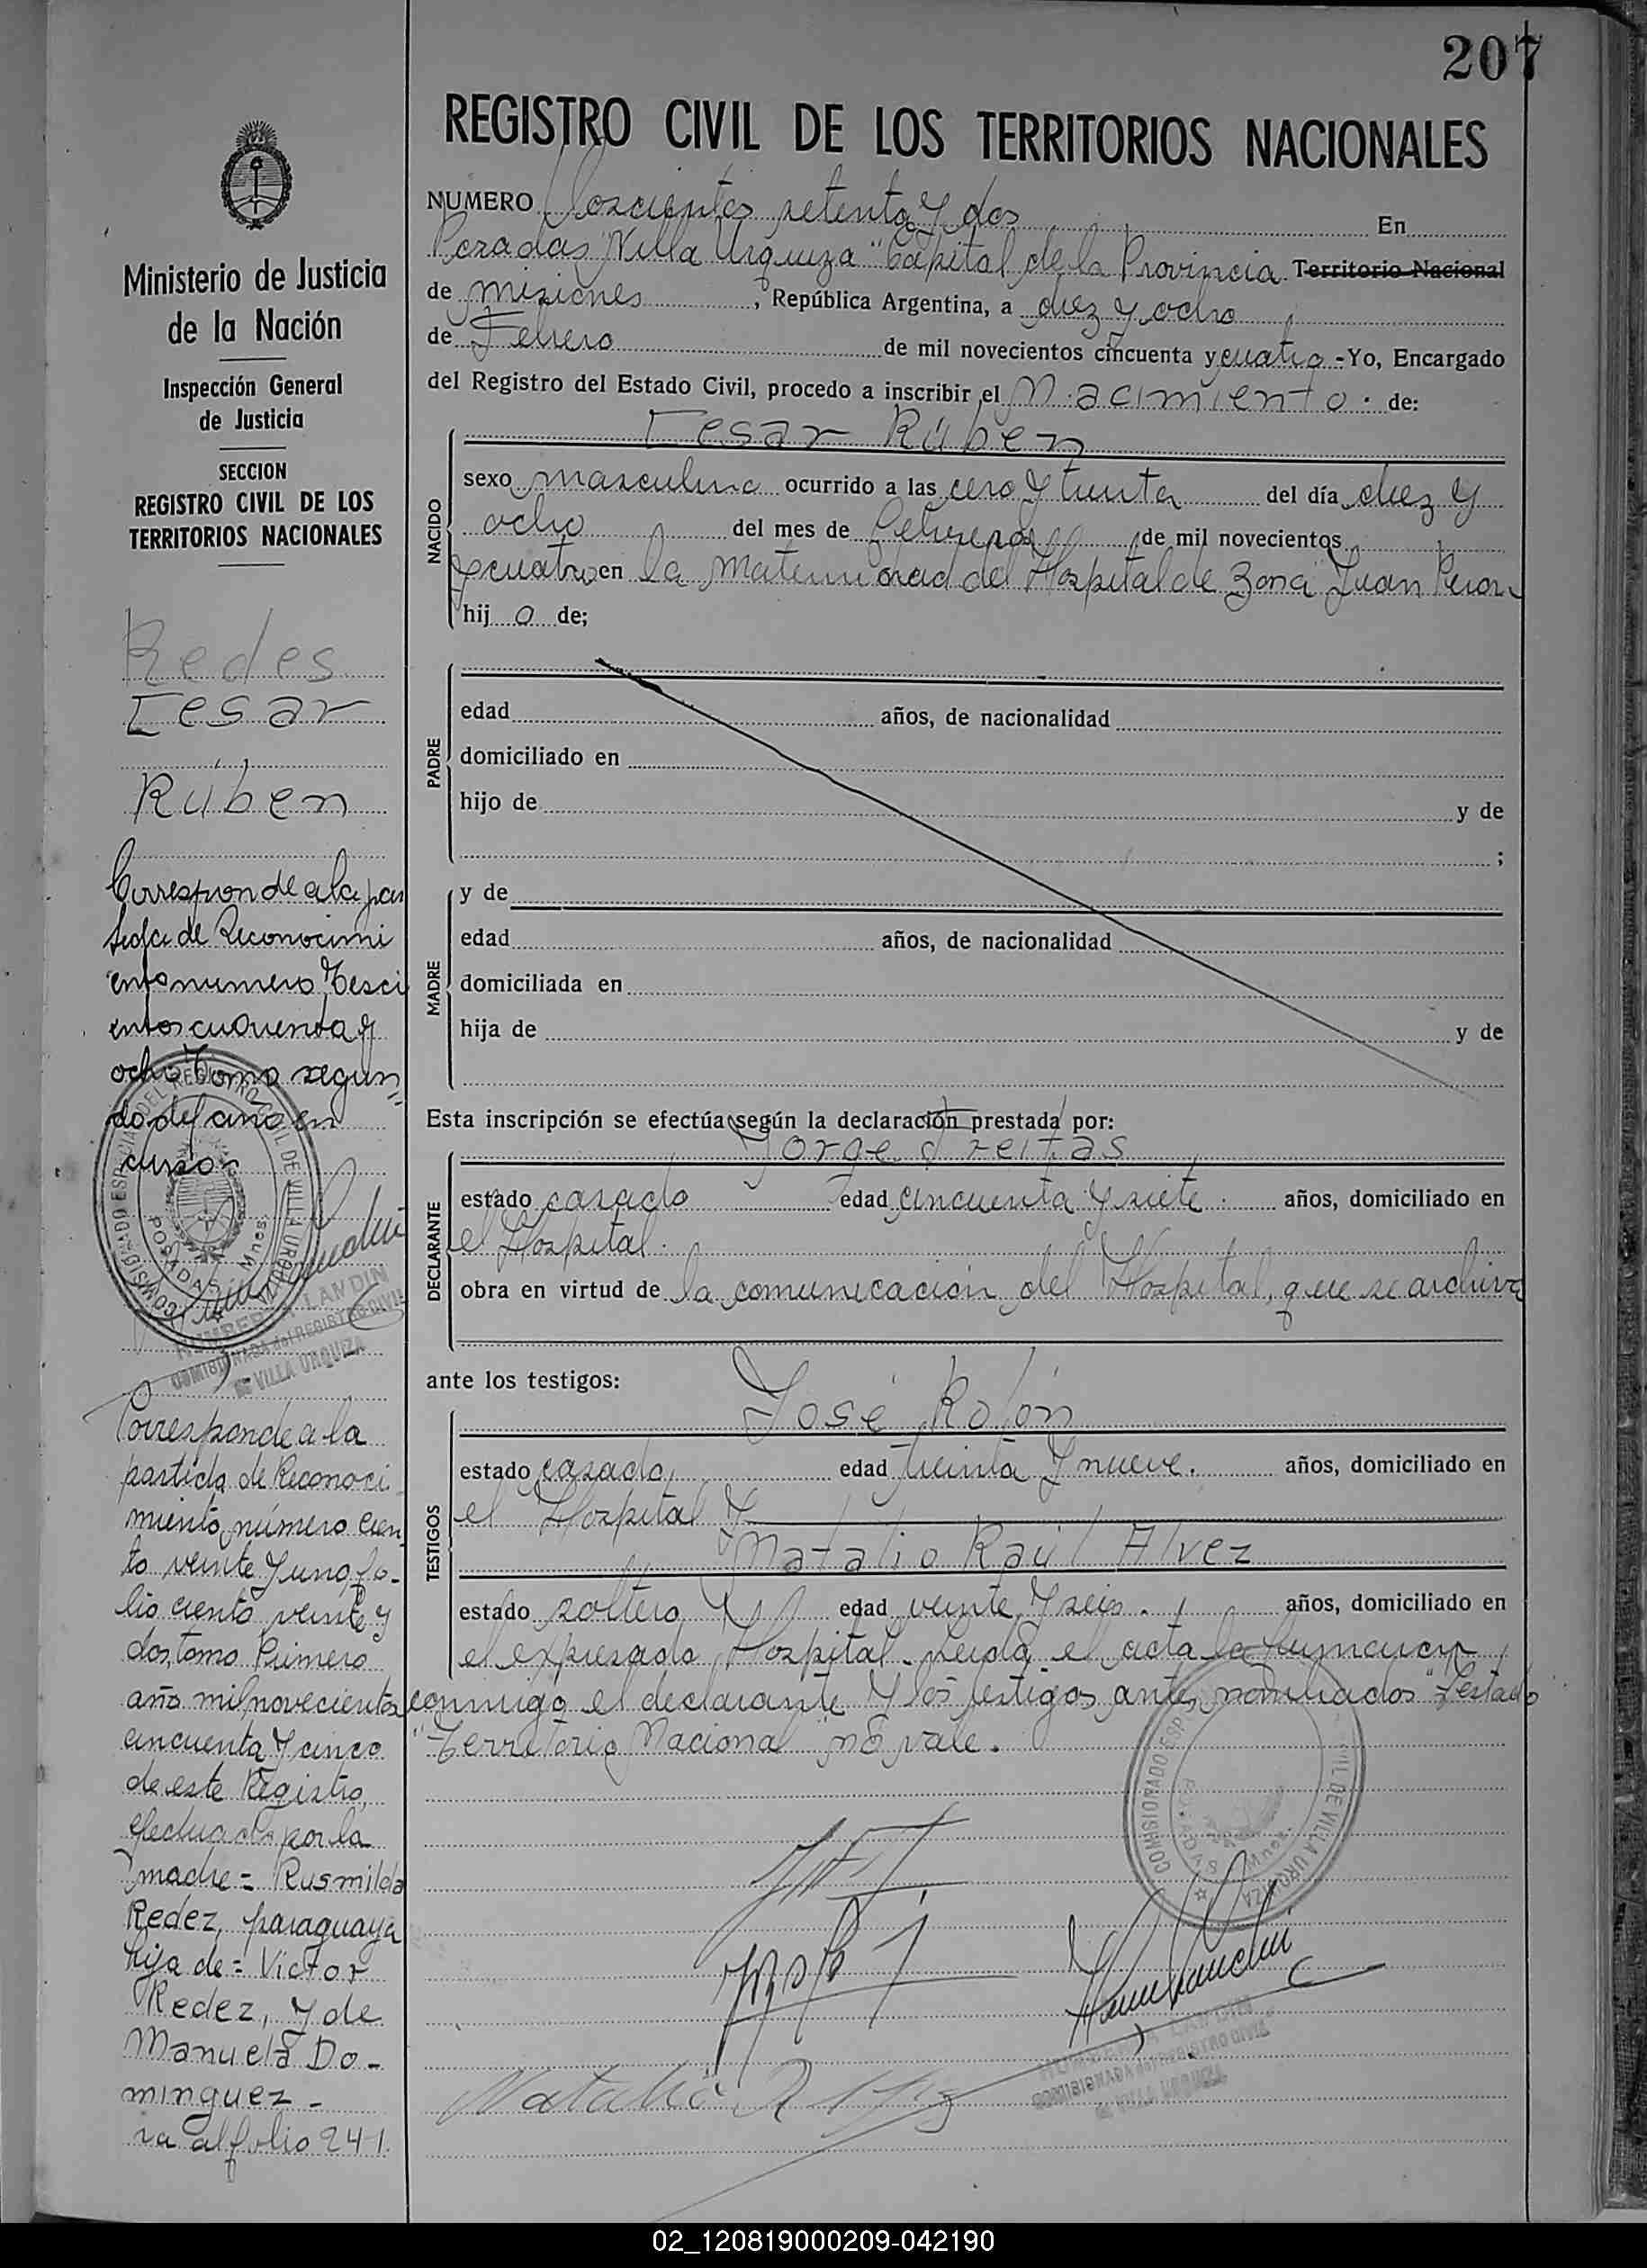 207
REGISTRO CIVIL DE LOS TERRITORIOS NACIONALES
Ministerio de Justicia
de la Nación
Inspección General
de Justicia
SECCION
REGISTRO CIVIL DE LOS
TERRITORIOS NACIONALES
Redes
Cesar
Rúben
Corresponde a la par
tida de Reconocimi
ento numero Tresci
entos cuarenta y
ocho Tomo segun
do del año en
curso
Corresponde a la
partida de Reconoci
miento, número cien
to veinte y uno, fo-
lio ciento veinte y
dos, tomo Primero
año mil novecientos
cincuenta y cinco
de este Registro,
efectuada por la
madre = Rusmilda
Redez, paraguaya
hija de = Victor
Redez, y de
Manuela Do-
minguez -
va al folio 241.
NUMERO Doscientos setenta y dos En
Posadas "Villa Urquiza" Capital de la Provincia Territorio Nacional
de Misiones, República Argentina, a diez y ocho
de Febrero de mil novecientos cincuenta y cuatro - Yo, Encargado
del Registro del Estado Civil, procedo a inscribir el Nacimiento. de:
Cesar Rúben
NACIDO
sexo masculino ocurrido a las cero y treinta del día diez y
ocho del mes de Febrero de mil novecientos
y cuatro en la Maternidad del Hospital de Zona Juan Peron
hijo de;
PADRE
edad años, de nacionalidad
domiciliado en
hijo de y de
;
MADRE
y de
edad años, de nacionalidad
domiciliada en
hija de y de
Esta inscripción se efectúa según la declaración prestada por:
DECLARANTE
Jorge Freitas
estado casado edad cincuenta y siete. años, domiciliado en
el Hospital.
obra en virtud de la comunicación del Hospital, que se archiva
ante los testigos:
TESTIGOS
José Rolón
estado casado, edad treinta y nueve. años, domiciliado en
el Hospital y
Natalio Raúl Alvez
estado soltero edad veinte y seis. años, domiciliado en
el expresado Hospital. Leida el acta la firmaron
conmigo el declarante y los testigos antes nombrados "Testado
"Territorio Nacional" no vale.
COMISIONADO ESP DEL REGISTRO CIVIL DE VILLA URQUIZA
POSADAS Mnes.
COMISIONADA del REGISTRO CIVIL
de VILLA URQUIZA
COMISIONADO ESP CIVIL DE VILLA URQUIZA
POSADAS Mnes.
COMISIONADA del REGISTRO CIVIL
de VILLA URQUIZA
02_120819000209-042190